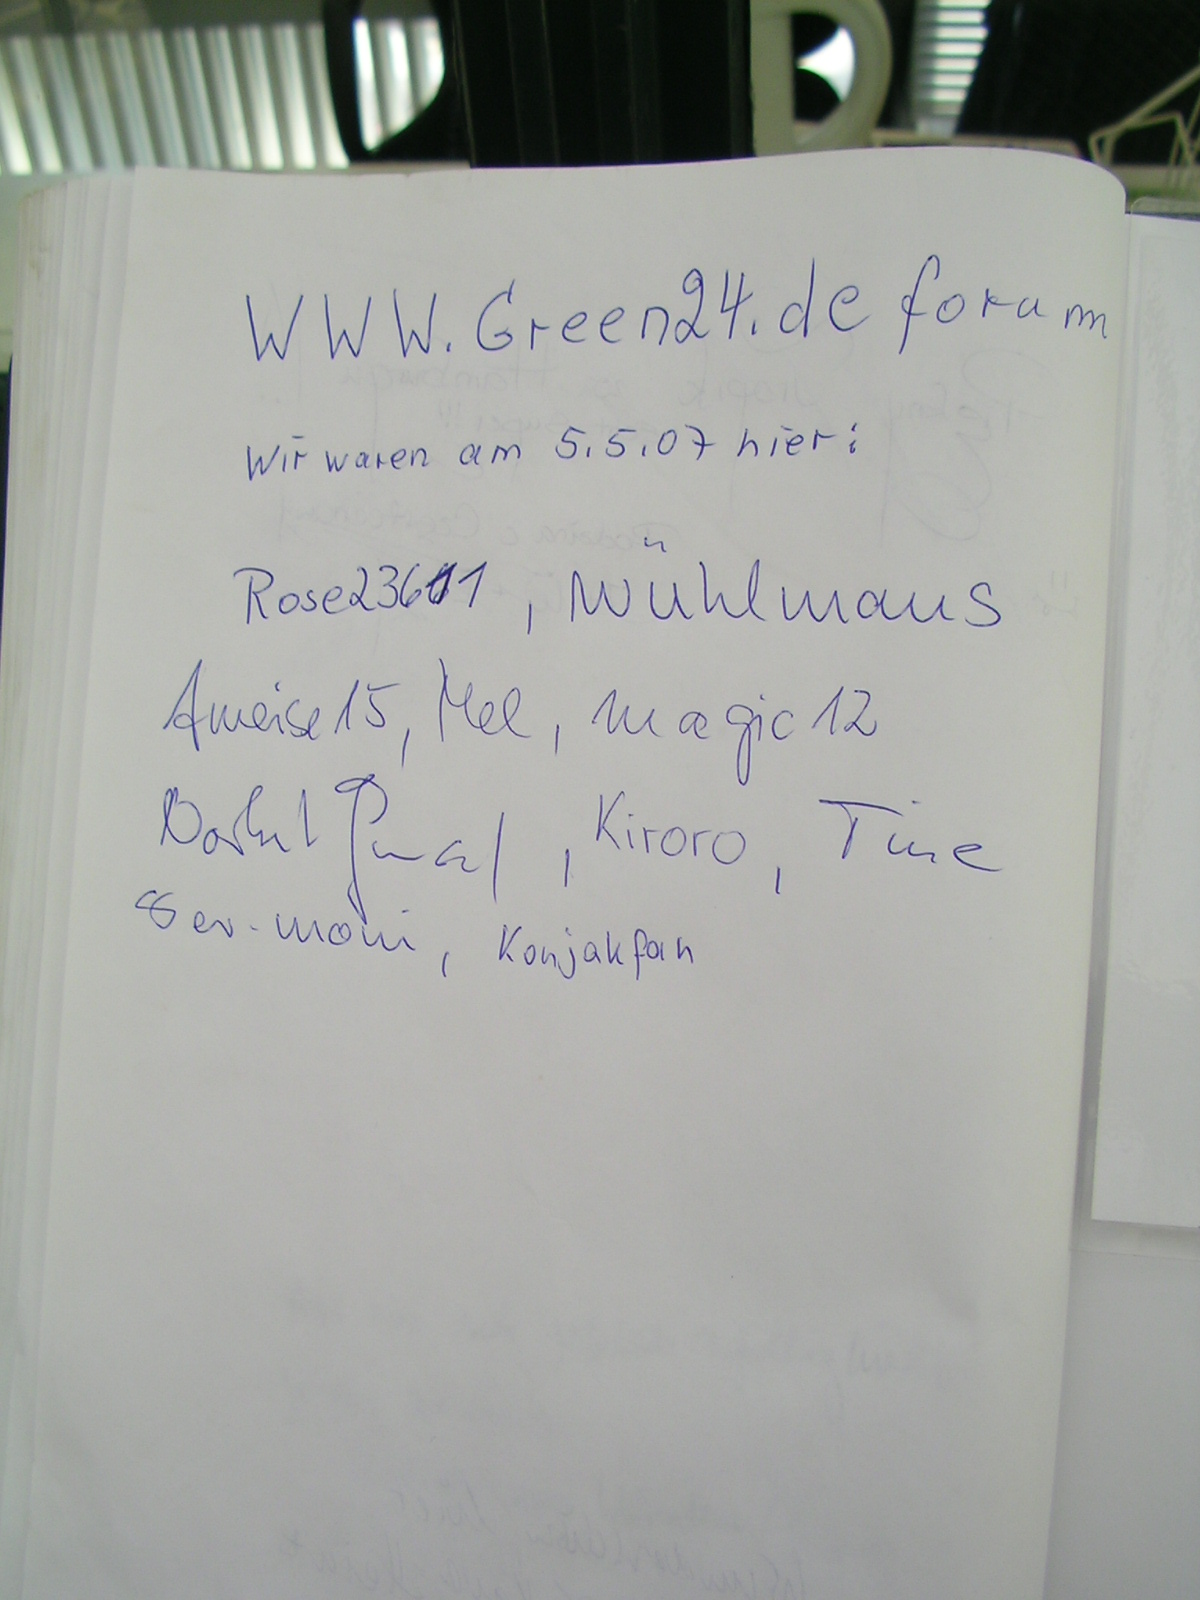 WWW.Green24.de forum
Wir waren am 5.5.07 hier:
Rose23611, Wühlmaus
Ameise15, Mel, magic12
, Kiroro, Tine
Konjakfan